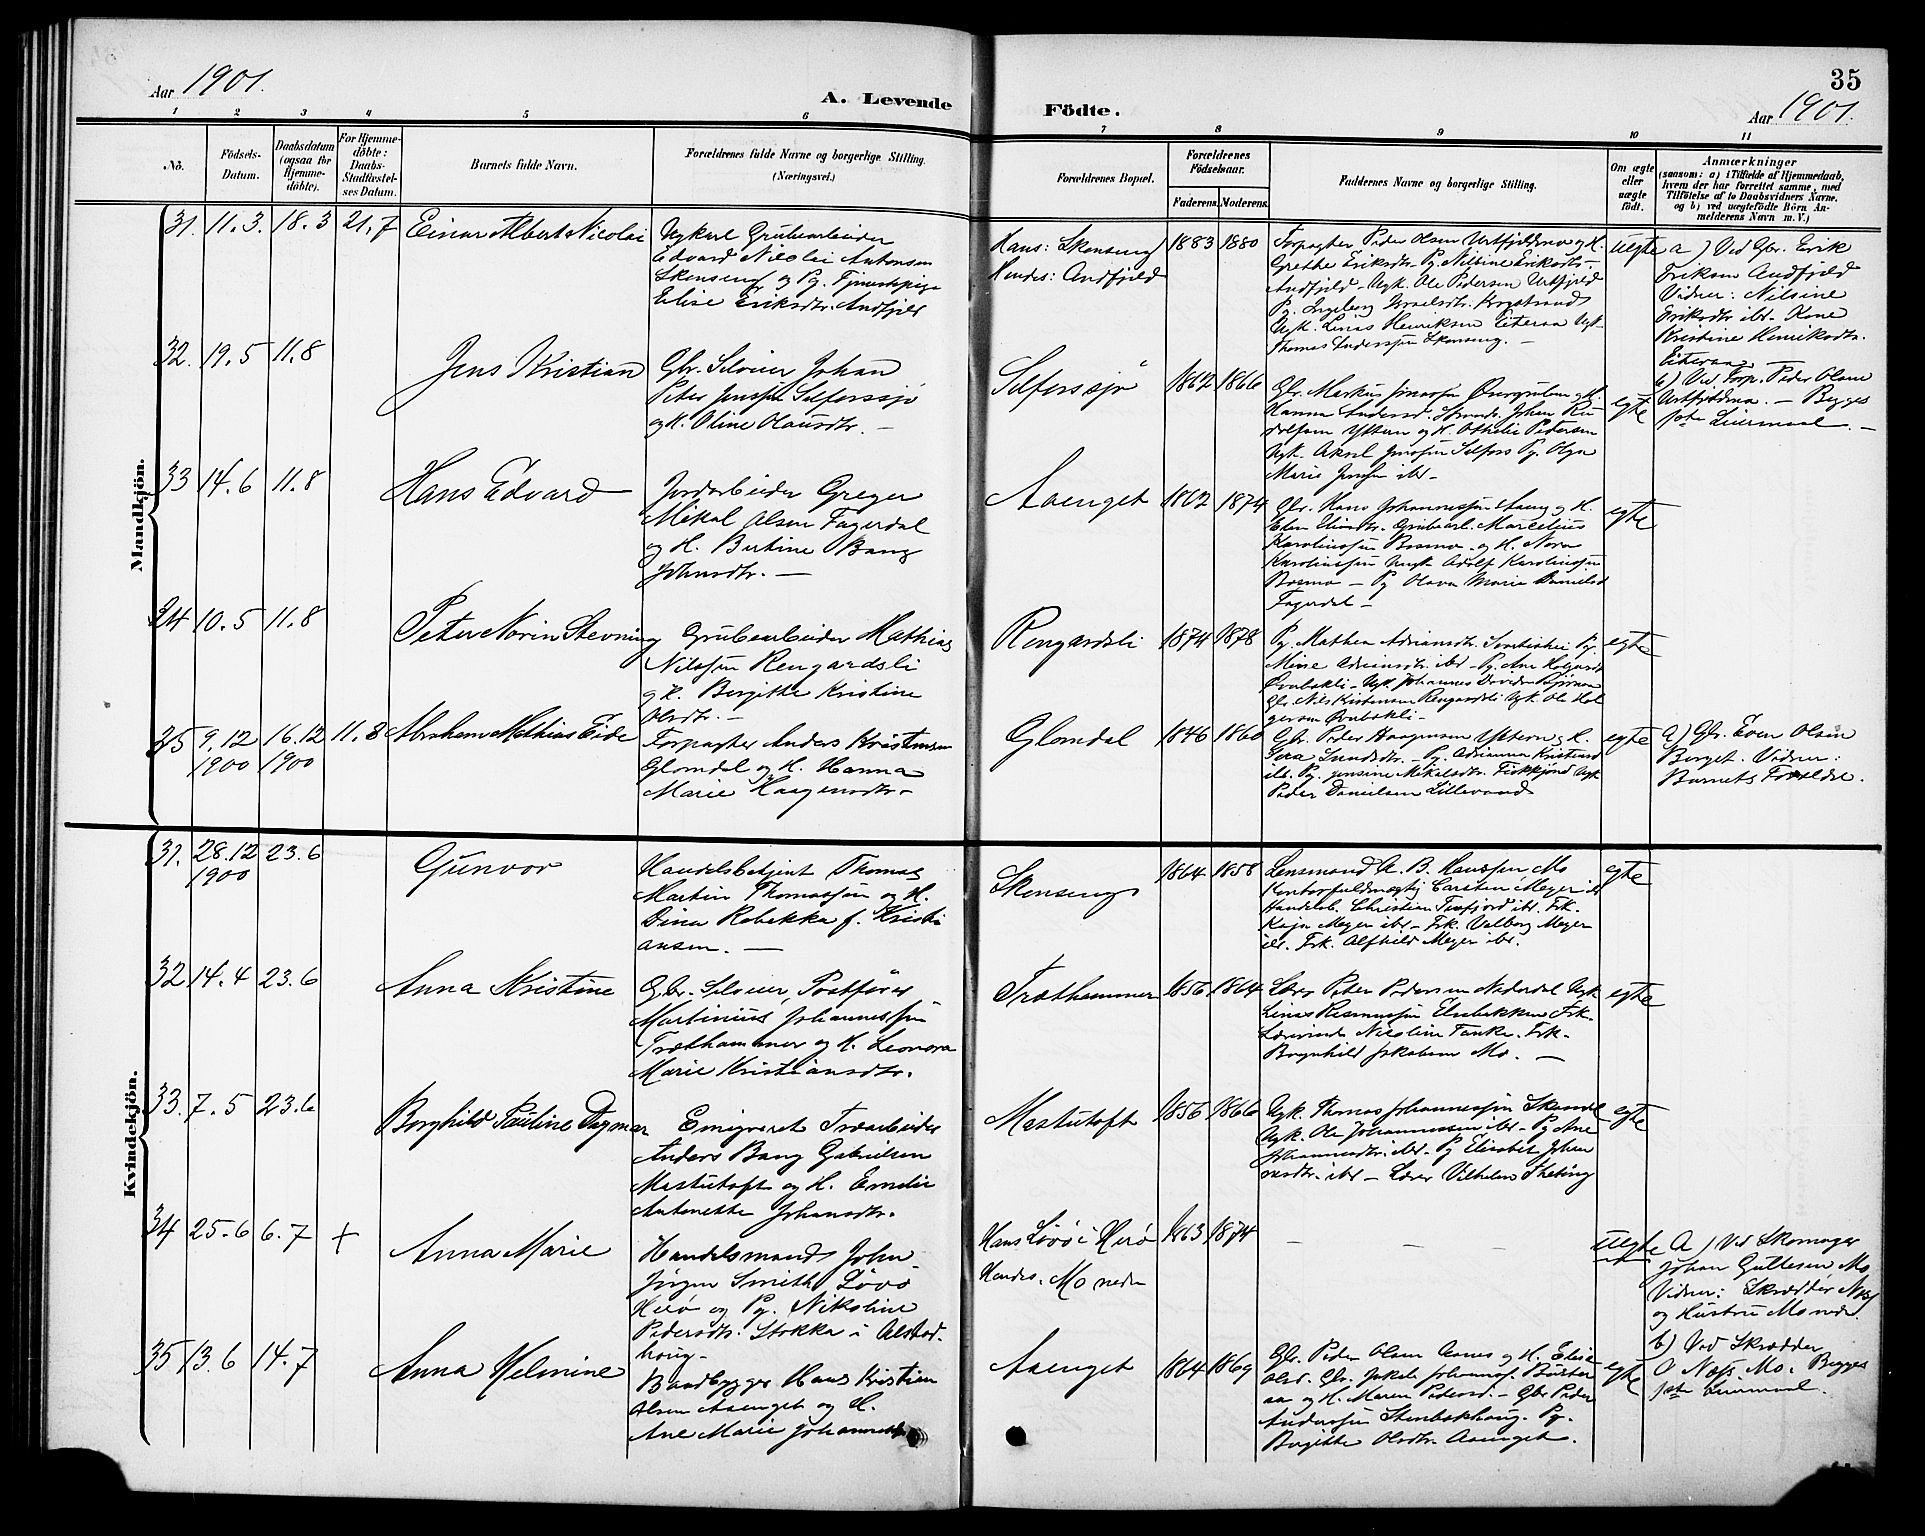 Aar 1901.
A. Levende Födte.
35
Aar 1901.
1 2 3 4 5 6 7 8 9 10 11
No.
Födsels-Datum.
Daabsdatum (ogsaa for Hjemme-döbte).
For Hjemme-döbte: Daabs-Stadfæstel-ses Datum.
Barnets fulde Navn.
Forældrenes fulde Navne og borgerlige Stilling.
(Næringsvei.)
Forældrenes Bopæl.
Forældrenes Födselsaar.
Faderens. Moderens.
Faddernes Navne og borgerlige Stilling.
Om ægte eller uægte födt.
Anmærkninger
(saasom: a) i Tilfælde af Hjemmedaab,
hvem der har forrettet samme, med
Tilföielse af to Daabsvidners Navne,
og b) ved uægtefödte Börn An-
melderens Navn m. V.)
Mandkjön.
31. 11.3. 18.3 21.7 Einar Albert Nicolai
Ugkarl Grubearbeider
Edvard Nicolai Antonsen
Skonseng og Pg. Tjenestepige
Elise Eriksdtr. Andfjeld
Hans: Skonseng
Hendes: Andfjeld
1883 1880
Forpagter Peder Olsen Urtfjeldmo og H.
Grethe Eriksdtr. Pg. Nilsine Eriksdtr.
Andfjeld - Ugk. Ole Pedersen Urtfjeld
Pg. Ingeborg Israelsdtr.
Ugk. Linas Henriksen Eiteraa Ugk.
Thomas Anderssen Skonseng. -
uegte
a) Ved Gbr. Erik
Eriksen Andfjeld
Vidner: Nilsine
Eriksdtr ibd. Kone
Kristine Henriksdtr.
Eiteraa -
b) Ved Forp. Peder Olsen
Urtfjeldmo. - Begges
1ste Leiermaal. -
32. 19.5 11.8 Jens Kristian
Gbr. Selveier Johan
Peter Jenssen Selforssjø
og H. Oline Olausdtr. -
Selforssjø
1862 1866
Gbr. Markus Jonassen Øvergulen og H.
Hanna Andersd. Johan Ru-
dolfsen Yttern og H. Othelie Pedersen
Ugk. Aksel Jenssen Selfors Pg. Olga
Marie Jenssen ibd. -
egte
33 14.6 11.8 Hans Edvard
Jordarbeider Greger
Mikal Olsen Fagerdal
og H. Bertine Bang
Johnsdtr. -
Aaenget
1862 1874
Gbr. Hans Johannessen Aaeng og H.
Elen Grubearb. Marcelius
Karoliussen Bosmo og H. Nora
Karoliussen Ungk. Adolf Karoliussen
Bosmo - Pg Olava Marie
Fagerdal -
egte
34 10.5 11.8 Peter Norin Stevning
Grubearbeider Mathias
Nilssen Rengardsli
og H. Bergitte Kristine
Olsdtr. -
Rengardsli
1874 1878
Pg. Mathea Adriansdtr. Pg.
Mine Adriansdtr. ibd - Pg. Ane
Ugk. Johannes
Gbr. Nils Kristensen Rengardsli Ugk. Ole Hol-
gersen
egte
35 9.12 1900 16.12 1900 11.8 Abraham Mathias Eide
Forpagter Anders Kristensen
Glomdal og H. Hanna
Marie Haagensdtr. -
Glomdal
1846 1860
Gbr. Peter Haagensen Yttern og H.
Pg. Adrianna
ibd. Pg. Jensine Mikalsdtr. Ugk
Peder Danielsen Lillevand
egte
a) Gbr. Even Olsen
Berget. Vidner:
Barnets Forældre.
Kvindekjön.
31. 28.12 1900 23.6 Gunvor
Handelsbetjent Thomas
Martin Thomassen og H.
Dina Rebekka f. Kristi
ansen. -
Skonseng
1864 1858
Lensmand A. B. Hanssen Mo
Kontorfuldmægtig Carsten Meyer ibd
Handelsb. Christian ibd. Frk.
Kaja Meyer ibd - Frk. Valborg Meyer
ibd. Frk. Alfhild Meyer ibd.
egte
32 14.4 23.6 Anna Kristine
Gbr. Selveier, Postfører
Martinius Johannessen
Træthammer og H. Leonora
Marie Kristiansdtr.
Træthammer
1856 1864
Peter Pedersen Nederdal Ugk
Linas Rasmussen Frk.
Lærerinde Nicoline Tanke. Frk.
Borghild Jakobsen Mo. -
egte
33. 7.5 23.6 Borghild Pauline Dagmar
Emigreret Træarbeider
Anders Bang Gabrielsen
Mastutoft og H. Emelie
Antonette Johansdtr.
Mastutoft
1856 1866
Ugk. Thomas Johannessen
Ugk. Ole Johannessen ibd - Pg Ane
Johannesdtr. ibd - Pg Elisabet Johan
nesdtr. ibd - Lærer Vilhelm
egte
34 25.6 6.7 + Anna Marie
Handelsmand John
Jørgen Smith Løvø
Herø og Pg. Nikoline
Pedersdtr. Stokka i Alstad-
haug -
Hans Løvø i Herø
Hendes. Mo nedre
1863 1874
- - -
uegte
a) Ved Skomager
Johan Guttesen Mo
Vidner: Skrædder
og Hustru Mo nedre
b) Ved Skrædder
O Mo. Begges
1ste Leiermaal.
35 13.6 14.7 Anna Helmine
Baadbygger Hans Kristian
Olsen Aaenget og H.
Ane Marie Johannesdtr.
Aaenget
1864 1869
Gbr. Peder Olsen og H. Elise
Olsd. Gbr. Jakob Johannes.
og H. Maren Pedersd. - Gbr. Peder
Anderssen Stenbækhaug. Pg.
Birgitte Olsdtr. Aaenget.
egte